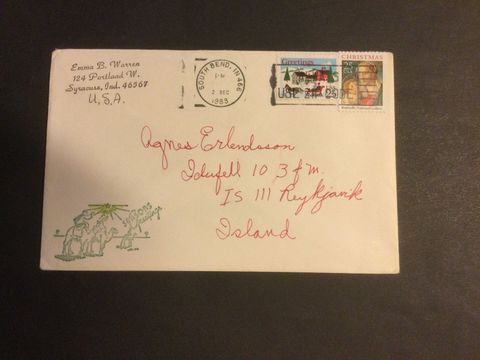 Emma B. Warren
124 Portland W.
Syracuse, Ind. 46567
U.S.A.
SOUTH BEND, IN 466
2 DEC
1985
Greetings
CHRISTMAS
USE ZIP
Agnes Erlendsson
Iðufell 10 3 f m.
IS 111 Reykjavik
Island
Seasons
Greetings